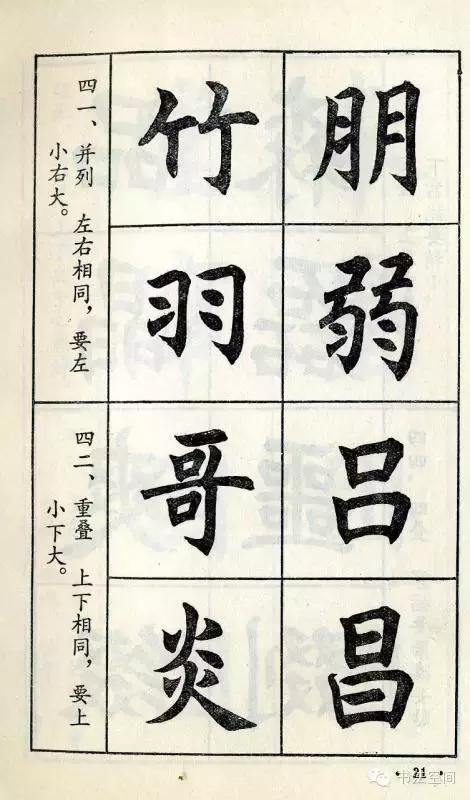 朋
弱
竹
羽
四一、并列 左右相同，要左
小右大。
吕
昌
哥
炎
四二、重叠 上下相同，要上
小下大。
· 21 ·
书法空间